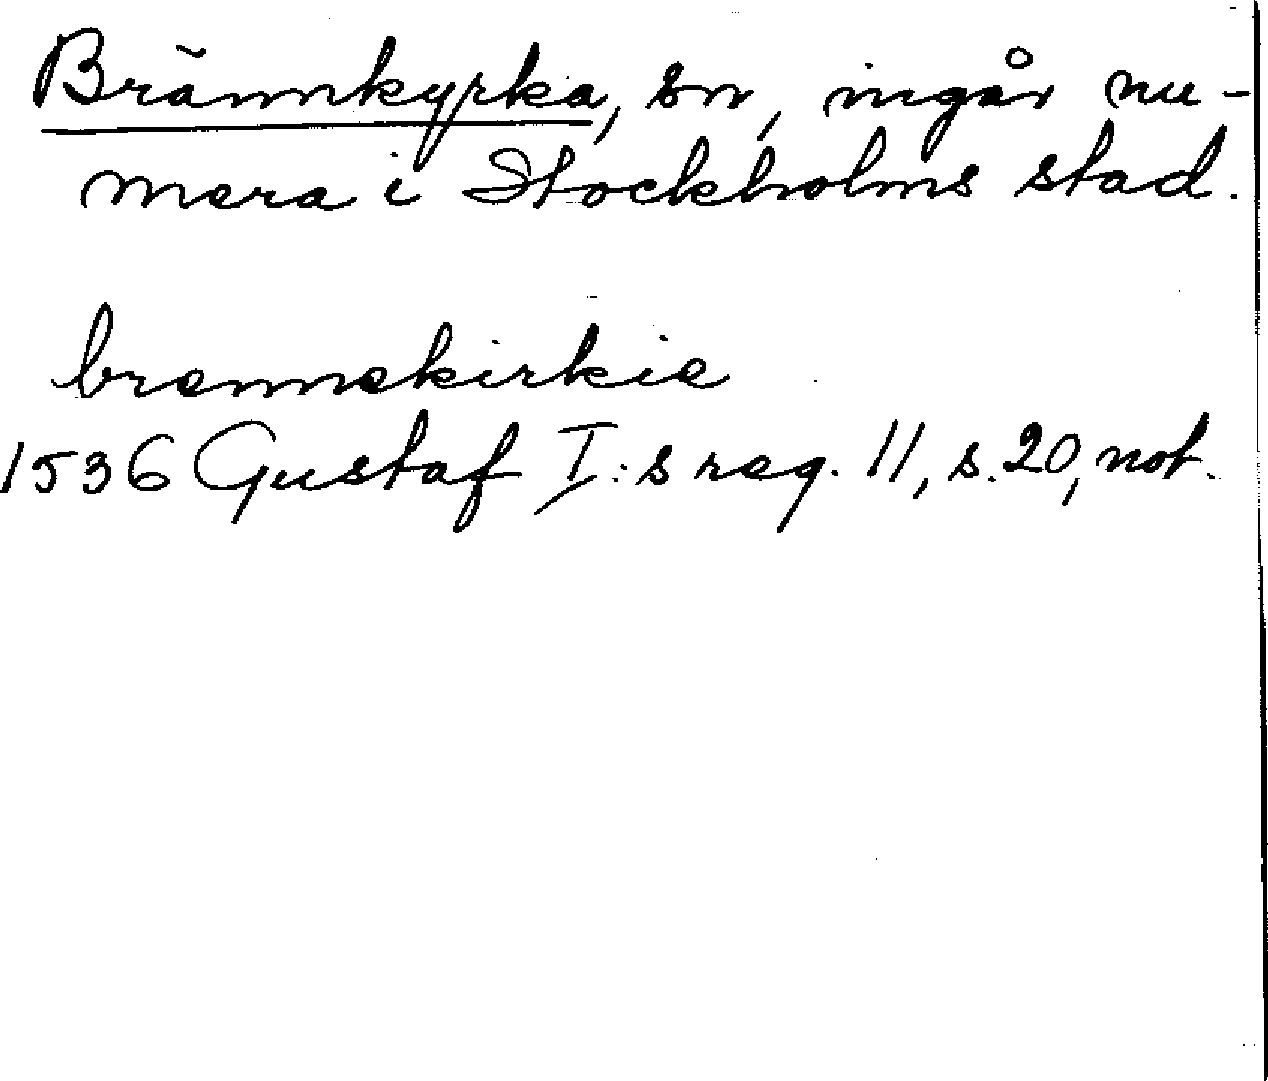 Brännkyrka, sn, ingår nu-
mera i Stockholms stad.
brennekirkie
1536 Gustaf I:s reg. 11, s. 20, not.